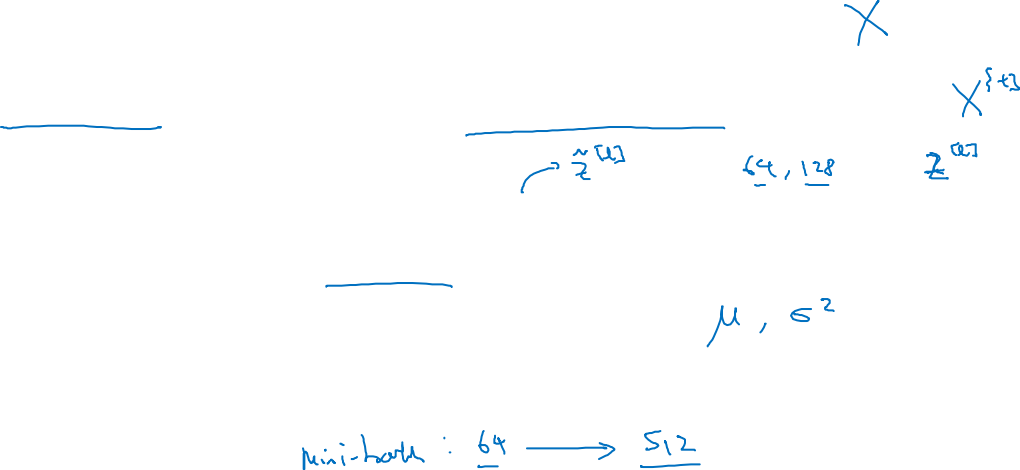 X
X^{t}
z̃^[l] 64, 128 z^[l]
μ, σ²
mini-batch : 64 → 512